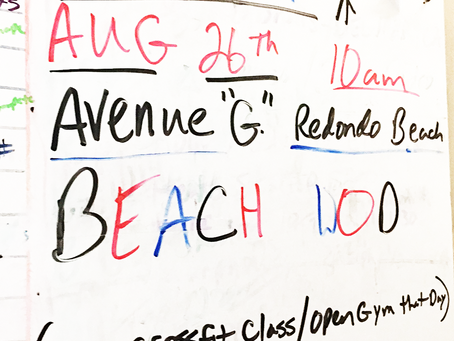 AUG 26th 10am
Avenue "G." Redondo Beach
BEACH WOD
CrossFit Class/Open Gym that Day)